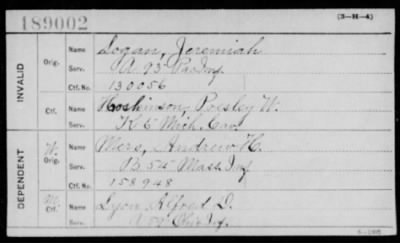 189002
(3-H-4)
INVALID
Orig.
Name Logan, Jeremiah
Serv. A 93 Pa. Inf.
Ctf. No. 130056
Ctf.
Name Hoskinson, Presley W.
Serv. K 5 Mich. Cav.
DEPENDENT
W. Orig.
Name Mers, Andrew H.
Serv. B 54 Mass. Inf.
Ctf. No. 158948
M. Ctf.
Name Lyon, Alfred D.
Serv. Ohio Inf.